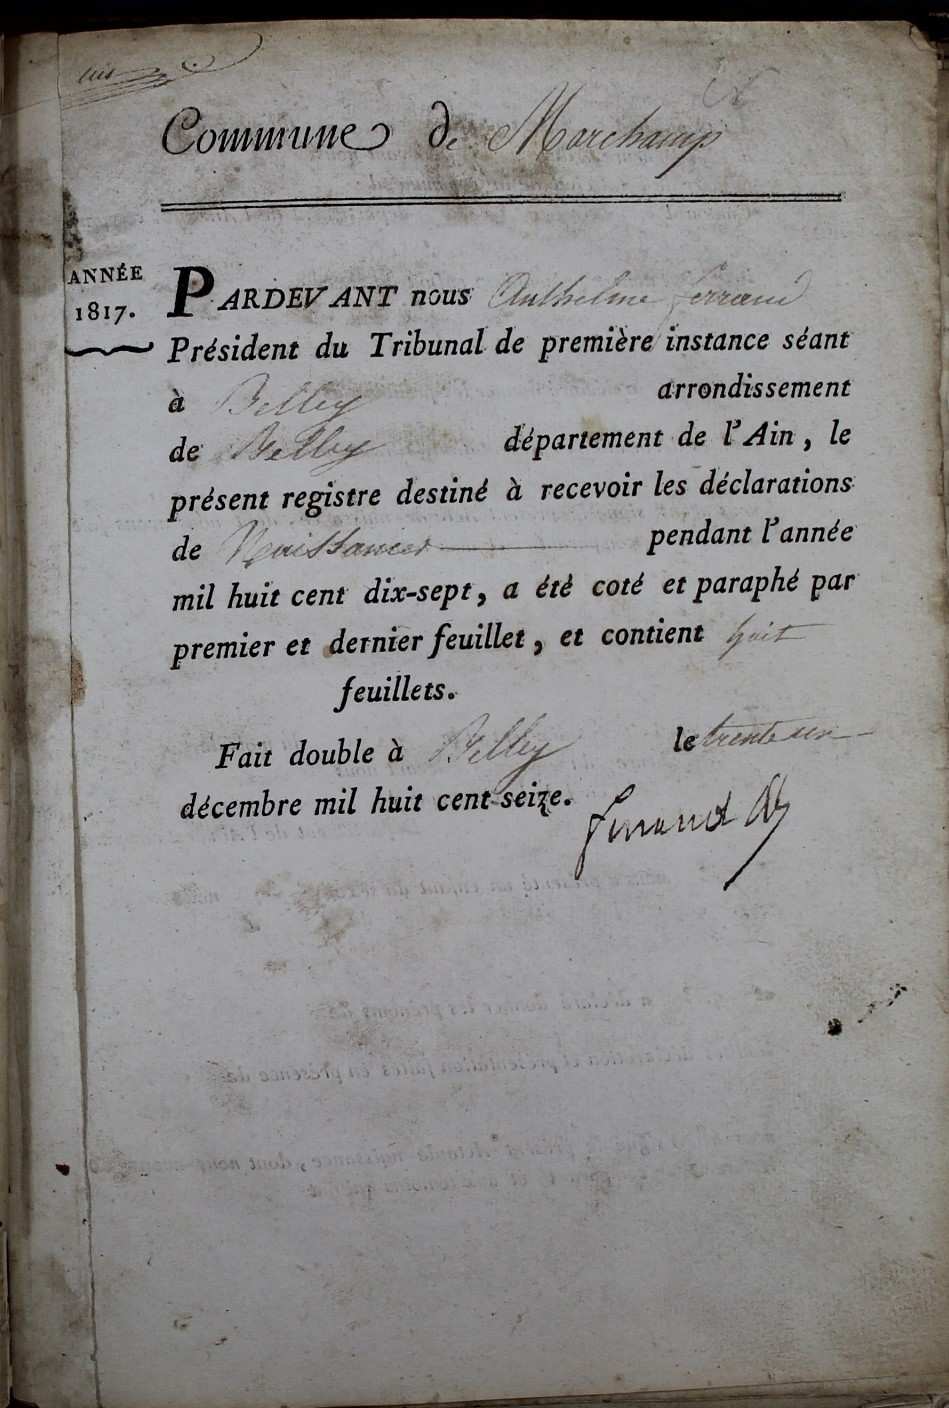 Commune de Marchamp
ANNÉE
1817.
PARDEVANT nous Anthelme ferrand
Président du Tribunal de première instance séant
à Belley arrondissement
de Belley département de l'Ain, le
présent registre destiné à recevoir les déclarations
de Naissances pendant l'année
mil huit cent dix-sept, a été coté et paraphé par
premier et dernier feuillet, et contient huit
feuillets.
Fait double à Belley le trente un
décembre mil huit cent seize.